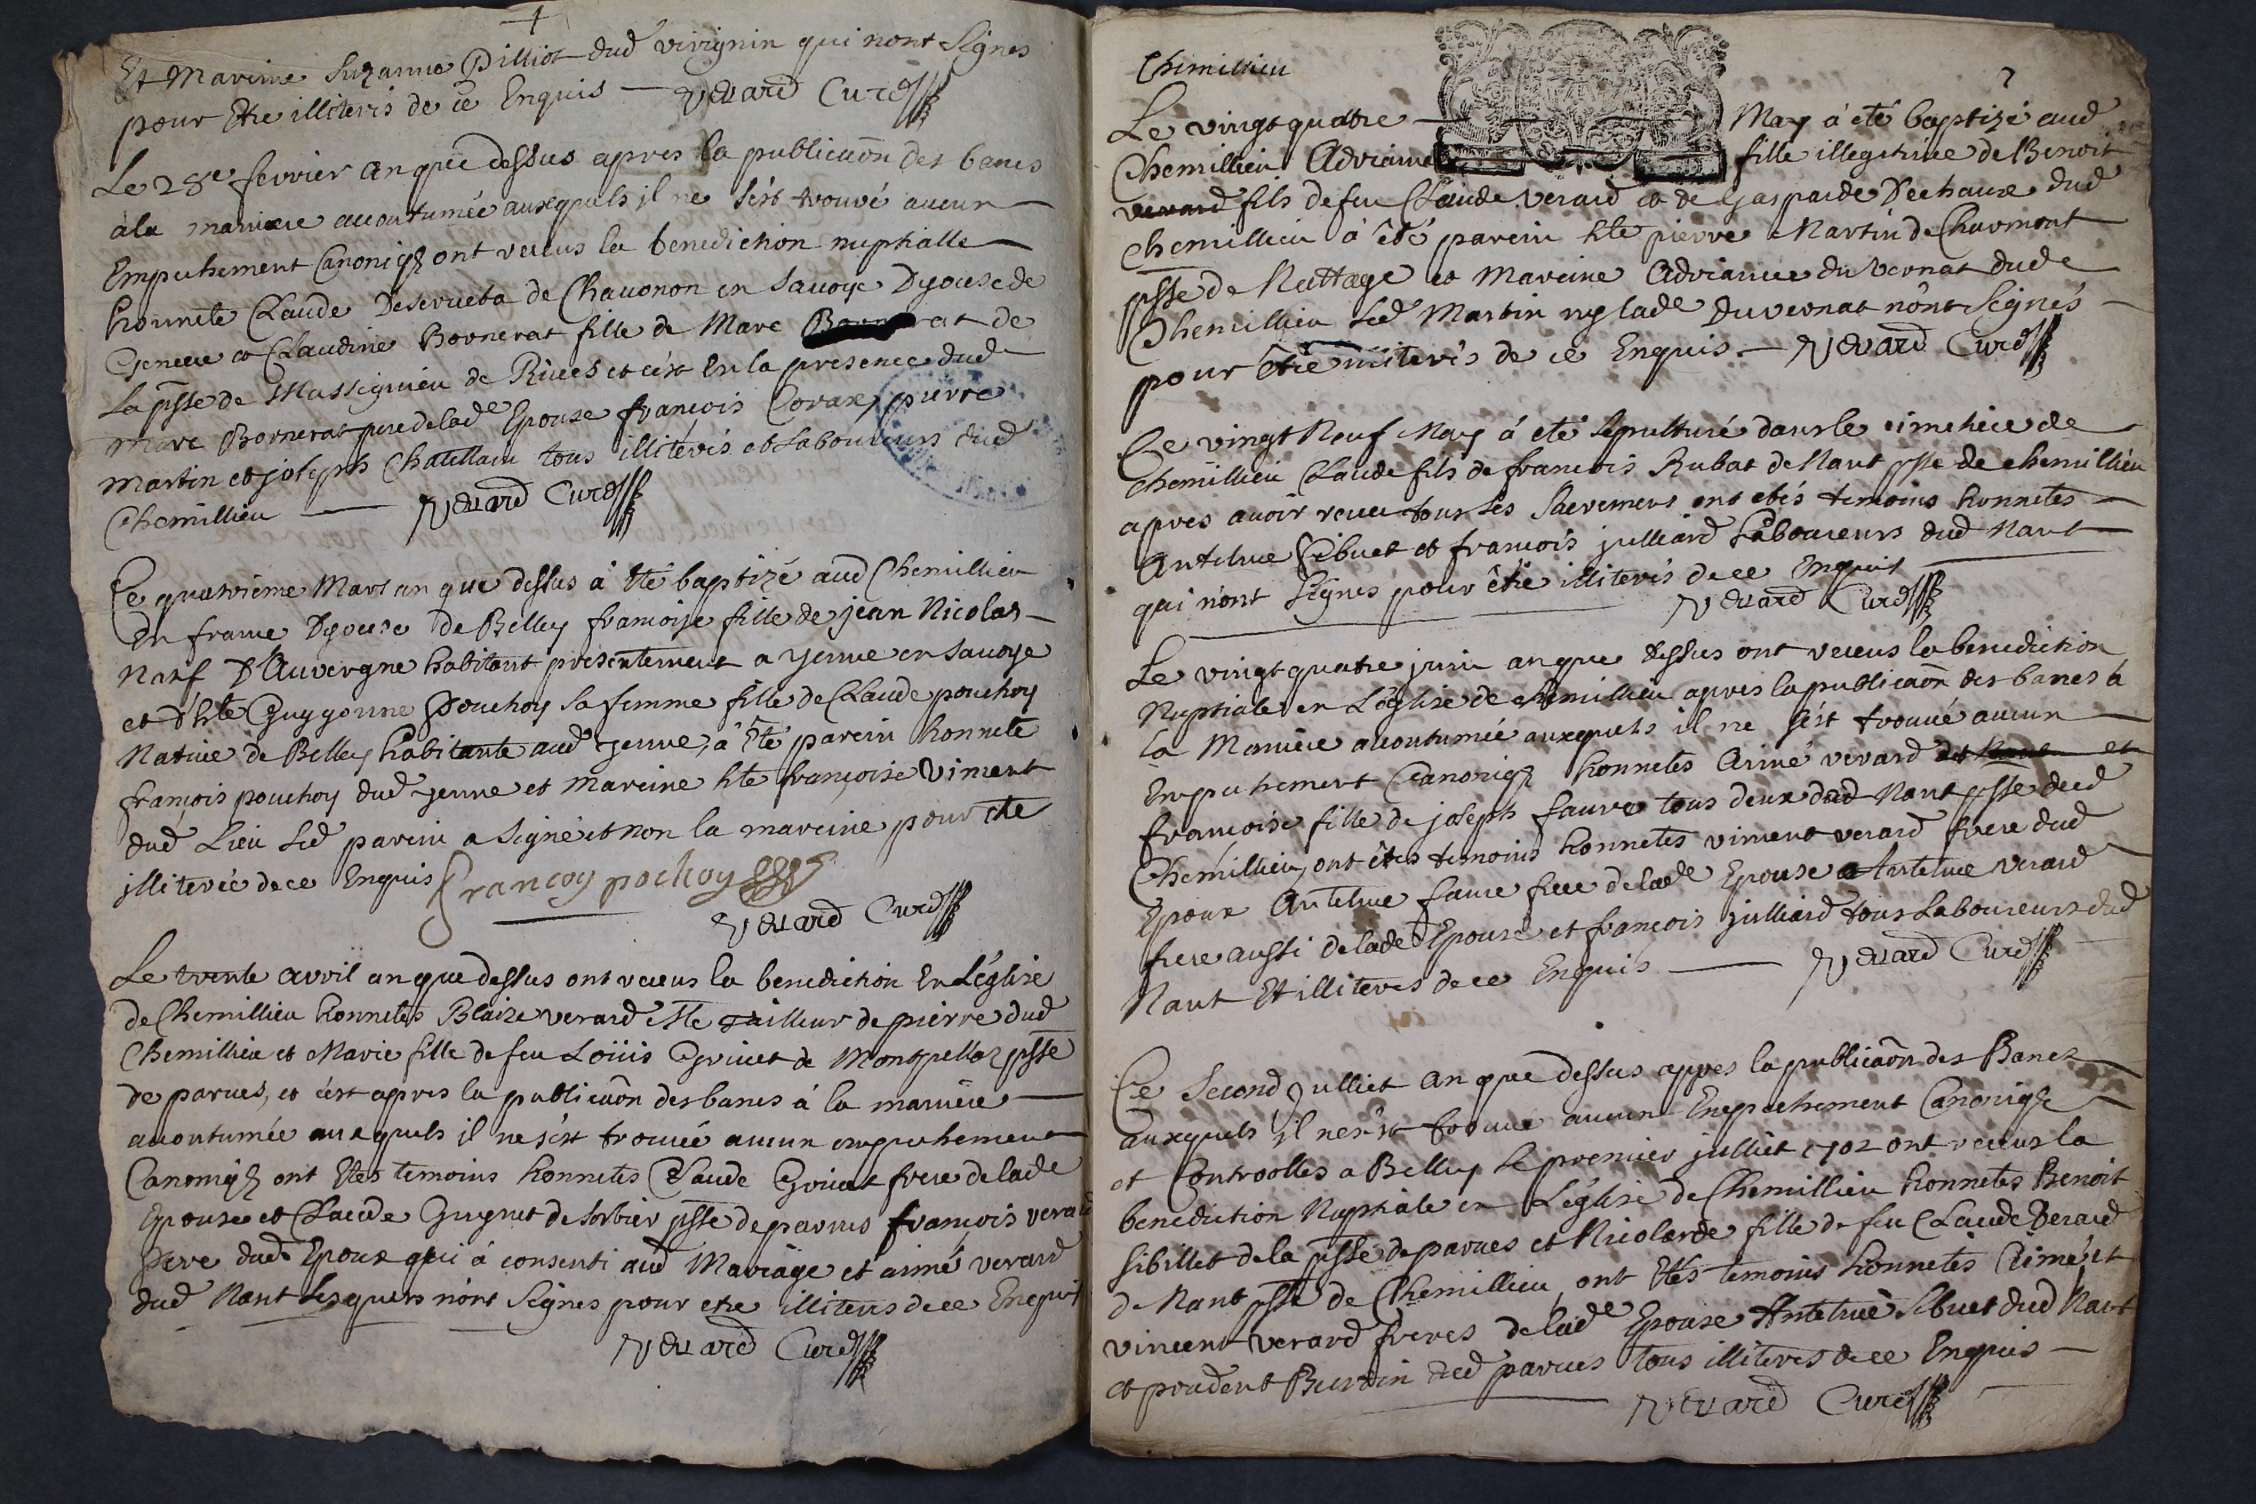 Et Mareine Suzanne Pilliot dud virignin qui nont Signes
pour Etre illiteris de ce Enquis Revard Curé
Le 28e fevrier an que dessus apres la publicaôn des bancs
à la maniere acoutumée auxquels il ne sést trouvé aucun
Empechement Canoniq ont receus la benediction nuptialle
honnete Claude de Chavonon en Savoye Dyoeze de
Geneve et Claudine Bornerat fille de Marc Bornerat de
La psse de Massignieu de Rives et cést En la presence dud
Marc Bornerat pere de lade Epouse françois Corax, pierre
Martin et joseph Chatillain tous illiteris et Laboureurs dud
Chemillieu Revard Curé
Le quatrieme Mars an que dessus à été baptizé aud Chemillieu
En france Dyoeze de Belley francoise fille de jean Nicolas
Narf D'Auvergne habitant presentement a yenne en Savoye
et d'hte Guygonne Pouchoy sa femme fille de Claude pouchoy
Native de Belley habitante aud yenne, à été parein honnete
françois pouchoy dud yenne et Mareine hte françoise Viment
dud Lieu Led parein a signé et non la mareine pour etre
illiterée de ce Enquis francoy pochoy
Revard Curé
Le trente avril an que dessus ont receus la benediction En L'église
de Chemillieu honnetes Blaize verard Mte tailleur de pierre dud
Chemillieu et Marie fille de feu Loüis Grivet de Montpellaz psse
de parves, et cést apres la publicaôn des bancs à la maniere
acoutumée auxquels il ne sést trouvé aucun empechement
Canoniq ont Etes temoins honnetes Claude Grivet frere de lade
Epouse et Claude Guynet de Sorbier psse de parves françois verard
Pere dud Epoux qui à consenti aud Mariage et aimé verard
dud Nant Lesquels nónt Signes pour etre illiteris de ce Enquis
Revard Curé
Chemillieu
Le vingt quatre May à été baptizé aud
Chemillieu Adrianne fille illegitime de Benoit
verard fils de feu Claude verard et de Gasparde Dechaux dud
Chemillieu à été parein hte pierre Martin de Charmont
psse de Nattage et Mareine Adrianne du vernat dud
Chemillieu Led Martin ny lade Duvernat nónt Signés
pour etre illiteris de ce Enquis. Revard Curé
Le vingt Neuf May à eté sepulturé dans le cimetiere de
Chemillieu Claude fils de francois Rubat de Nant psse de chemillieu
apres avoir receu tous les Sacremens ont etés temoins honnetes
Antelme Sibuet et francois julliard Laboureurs dud Nant
qui nónt Signes pour être illiteris de ce Enquis
Revard Curé
Le vingt quatre juin an que dessus ont receus la benediction
Nuptiale en L'église de chemillieu apres la publicaôn des bancs à
la Maniere acoutumée auxquels il ne sést trouvé aucun
Empechement Canoniq honnetes Aimé verard et
francoise fille de joseph faure tous deux dud Nant psse dud
Chemillieu, ont étes temoins honnetes vincent verard frere dud
Epoux Antelme faure frere de lade Epouse Antelme verard
frere aussi de lade Epouse et françois julliard tous Laboureurs dud
Nant Et illiteres de ce Enquis Revard Curé
Le Second Julliet an que dessus apres la publicaôn des Bancs
auxquels il ne sést trouvé aucun Empechement Canoniq
et Controolles a Belley Le premier julliet 1702 ont receus la
benediction Nuptiale en L'église de Chemillieu honnetes Benoit
sibillet de la psse de parves et Nicolarde fille de feu Claude Verard
de Nant psse de Chemillieu, ont Etes temoins honnetes Aimé et
vincent verard freres de lade Epouse Antelme Sibuet dud Nant
et prudent Burdin dud parves tous illiteres de ce Enquis
Revard Curé